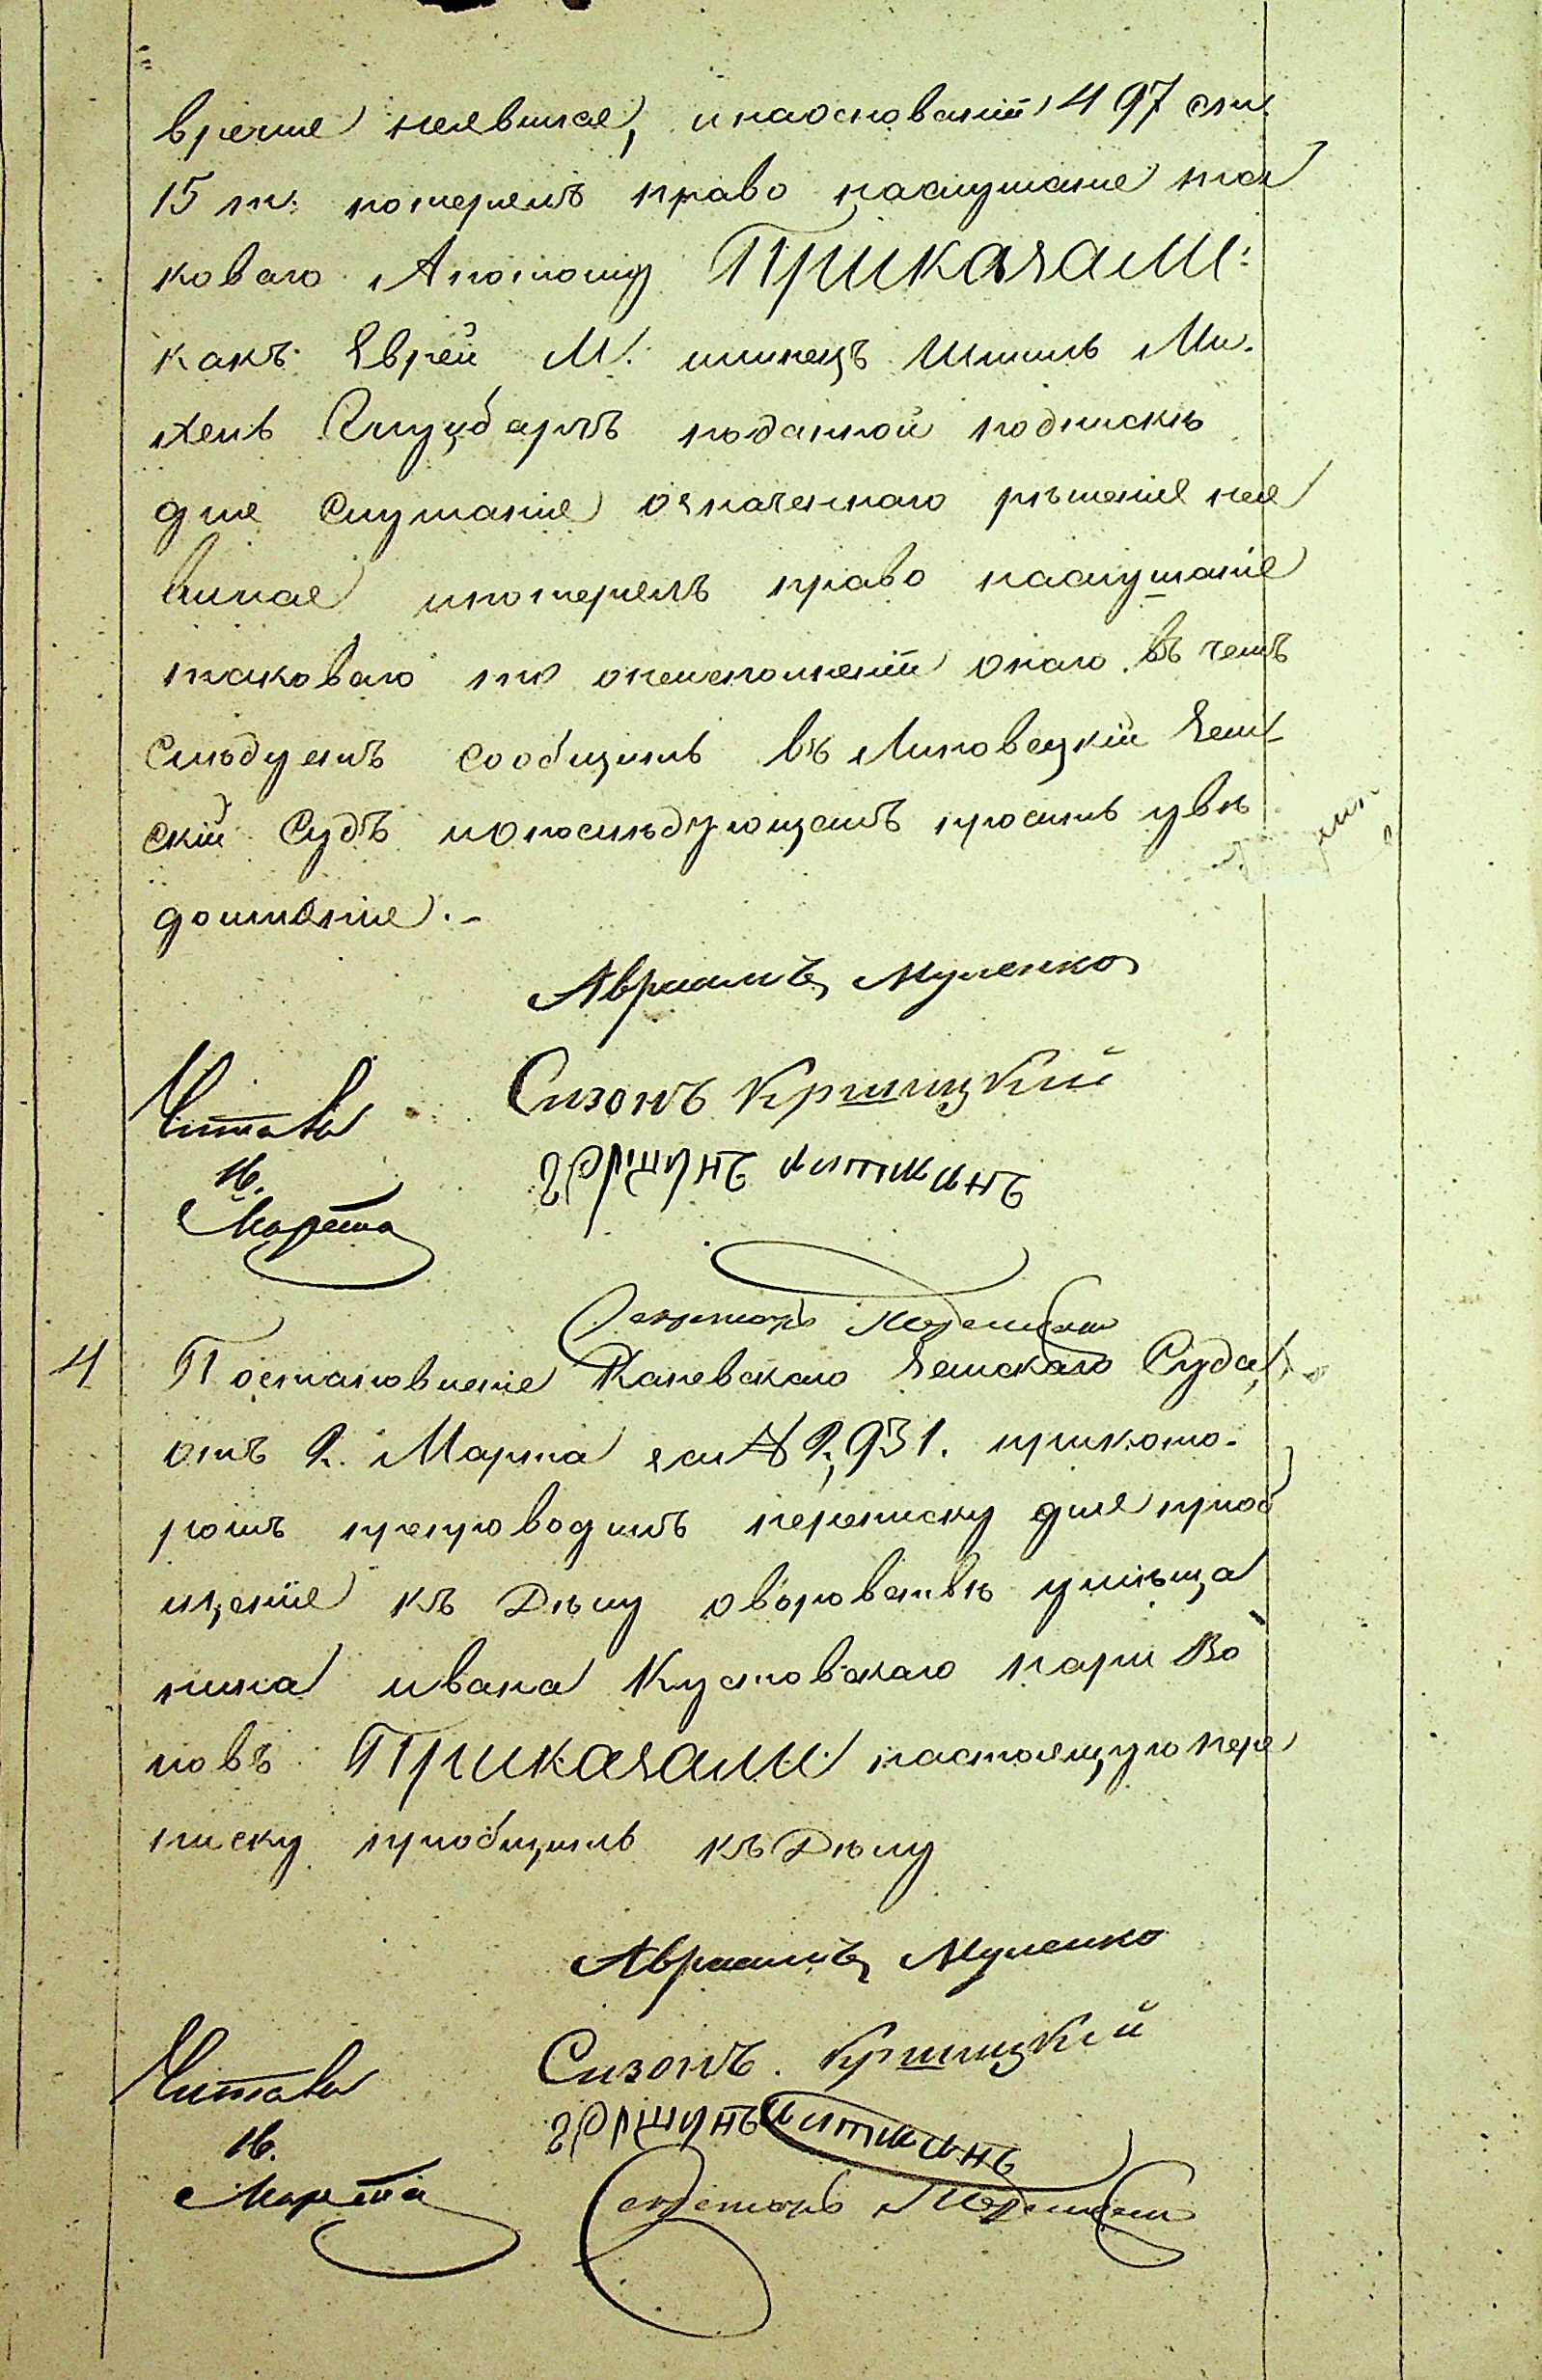 время неявился, и на основаніи 497 ст.
15 т. потерялъ право на слушаніе та
коваго А потому Приказали:
какъ Еврей М. Шимель Ми.
хель поданной подписки
для слушанія означеннаго рѣшенія нея
вился и потерялъ право на слушаніе
таковаго то о неисполненіи онаго въ чемъ
слѣдуетъ сообщить въ Липовецкій Зем
скій Судъ и о послѣдующемъ просить увѣ
домленія.-
Авраамъ Муленко
Читалъ Сизонъ Криницкій
16. Никитинъ
Марта
Секретарь
4 Постановленіе Каневскаго Земскаго Суда
отъ 2. Марта за № 2,931. при кото-
ромъ препроводитъ переписку для пріоб
щенія къ Дѣлу о воровствѣ у
ника Ивана Кустовскаго пары Во
ловъ Приказали настоящую пере
писку пріобщить къ Дѣлу
Авраамъ Муленко
Читалъ Сизонъ Криницкій
16. Никитинъ
Марта Секретарь